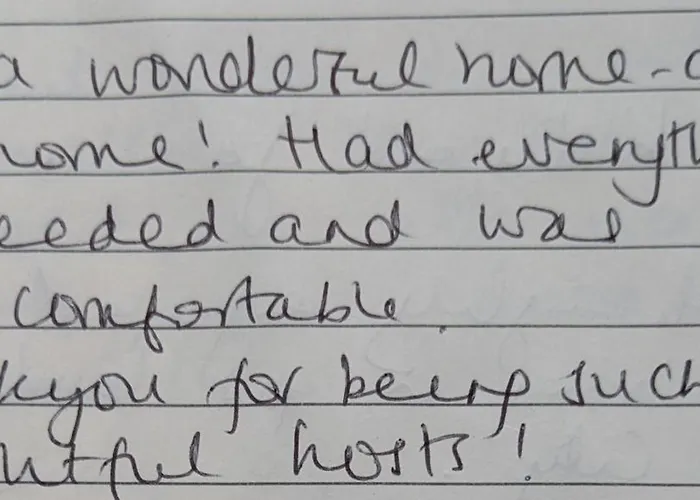 a wonderful home-a
home! Had everyth
eeded and was
comfortable.
kyou for being such
htful hosts!